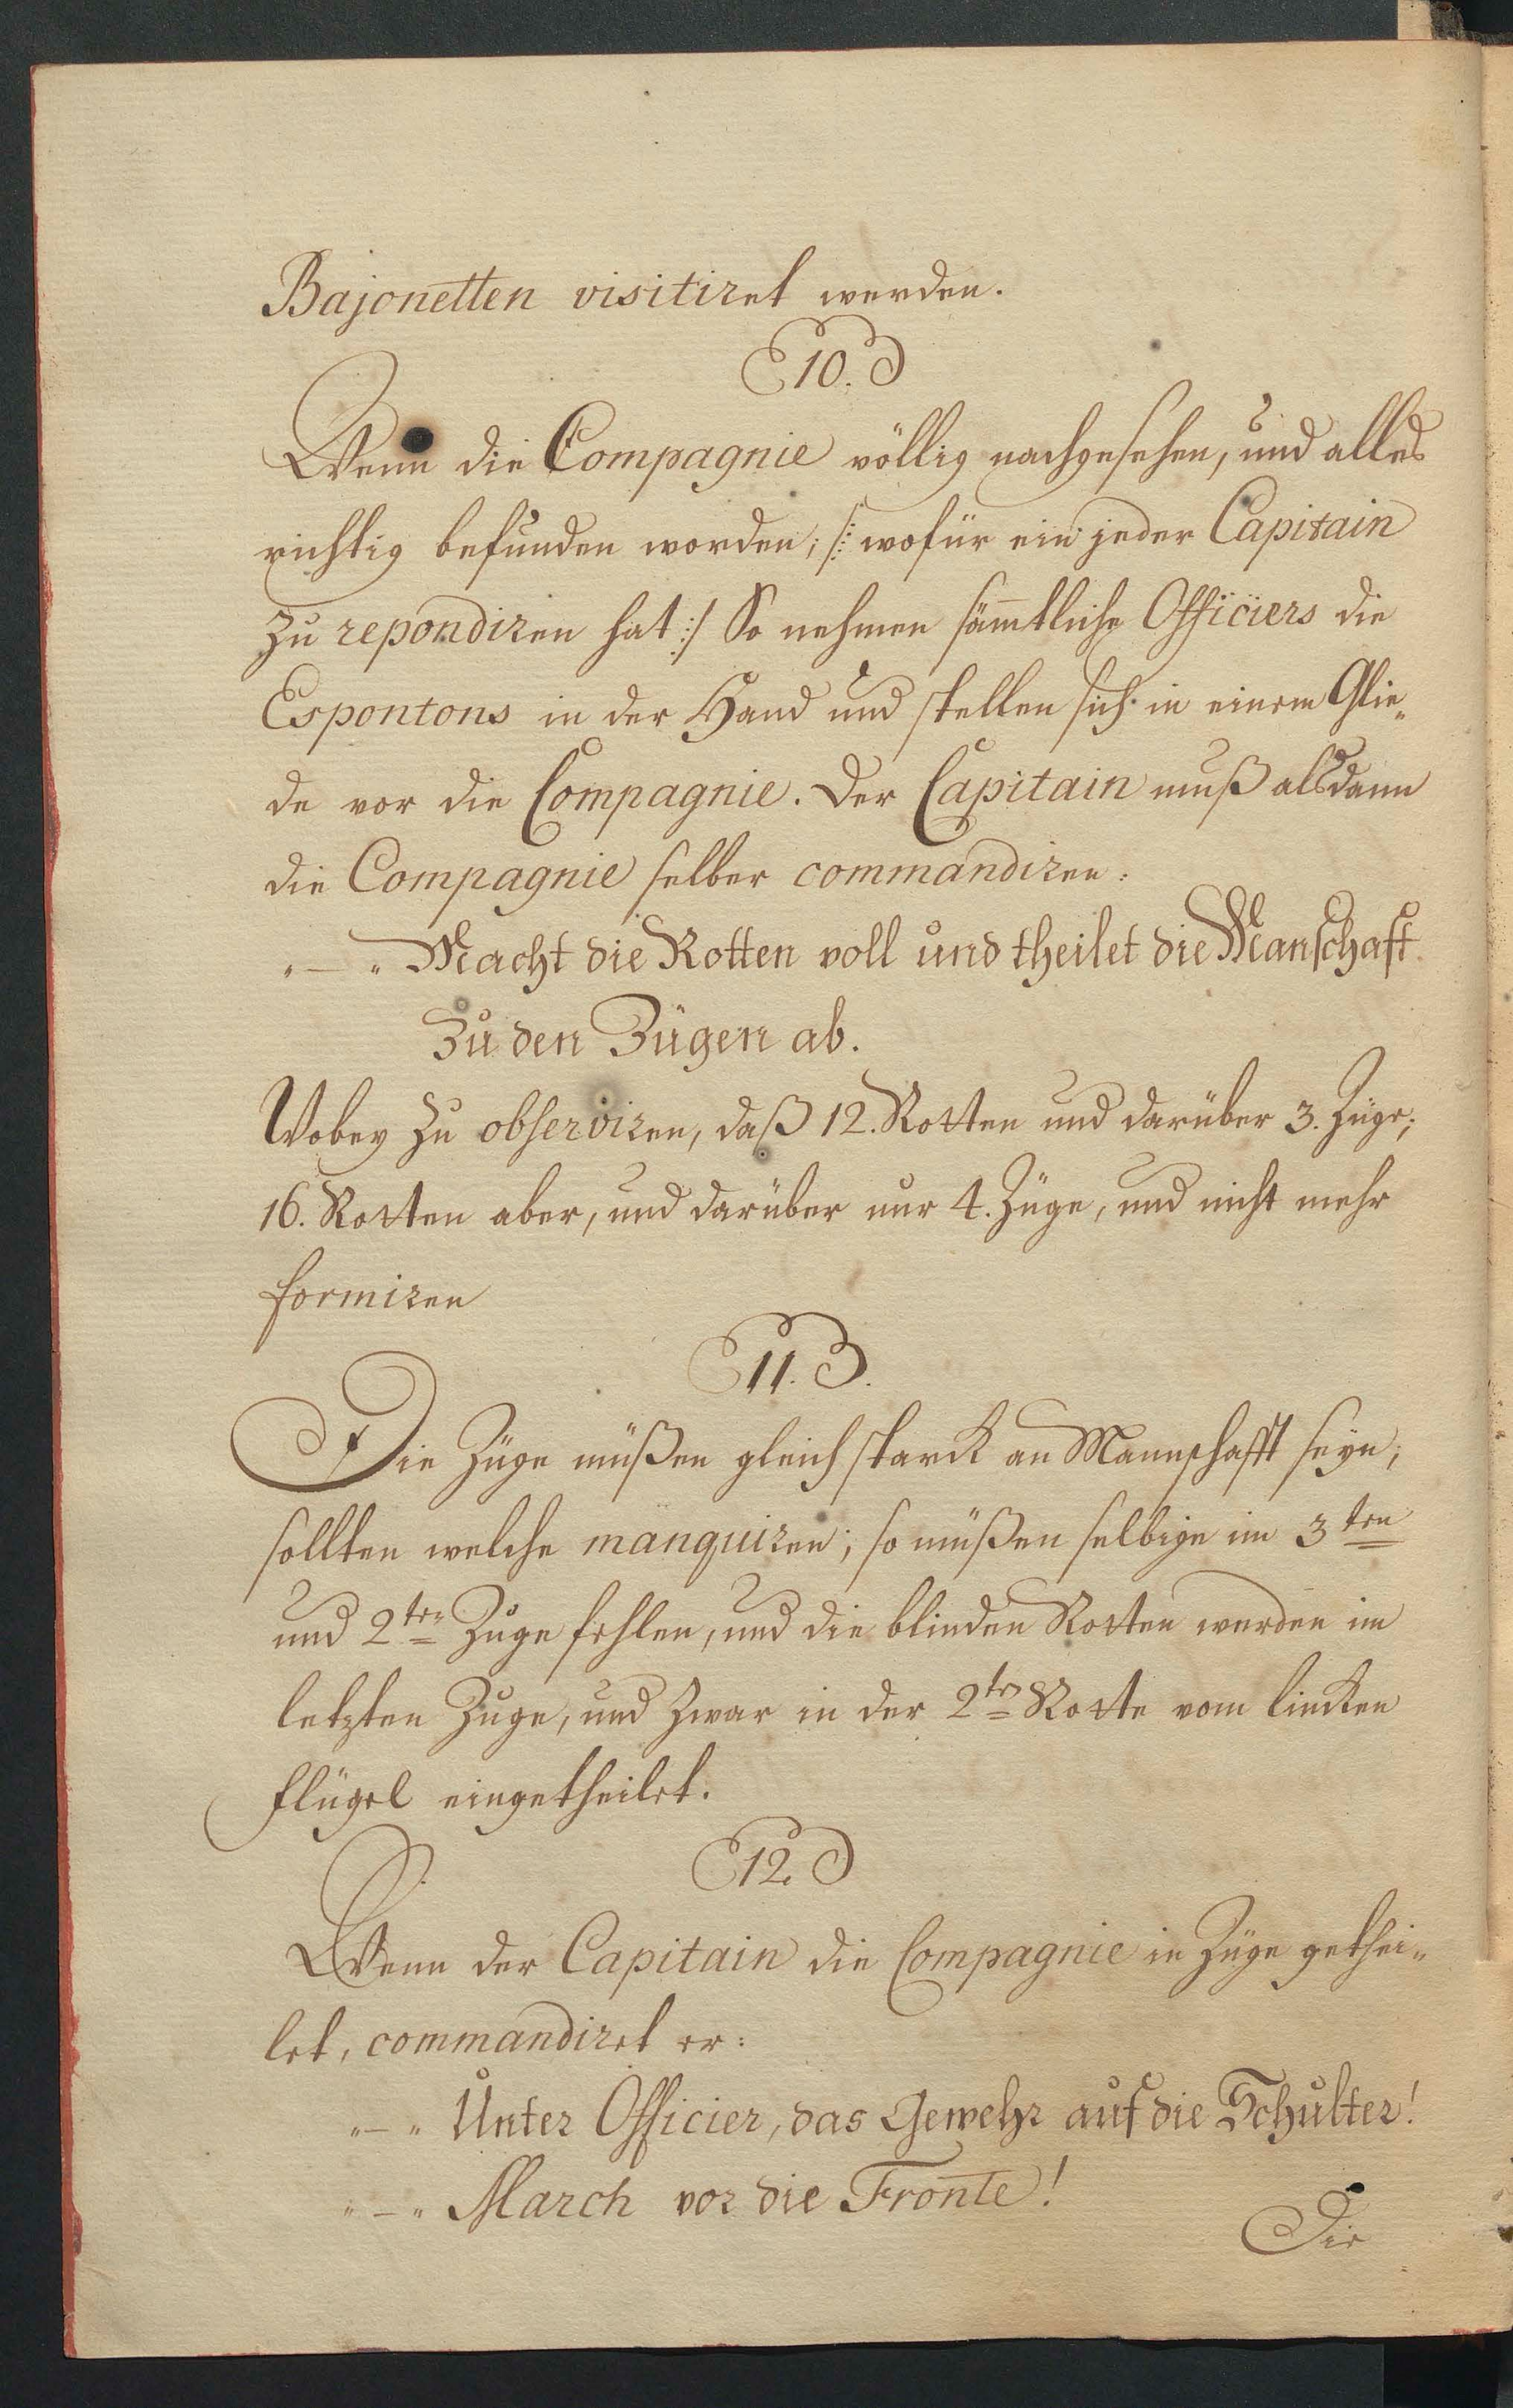 Bajonetten visitiret werden.
10.
Wenn die Compagnie völlig nachgesehen, und alles
richtig befunden worden; /: wofür ein jeder Capitain
zu repondiren hat :/ So nehmen sämtliche Officiers die
Espontons in der Hand und stellen sich in einem Glie„
de vor die Compagnie. Der Capitain muß alsdann
die Compagnie selber commandiren:
„—„ Macht die Rotten voll und theilet die Manschaft
Zu den Zügen ab.
Wobey zu observiren, daß 12. Rotten und darüber 3. Züge;
16. Rotten aber, und darüber nur 4. Züge, und nicht mehr
formiren
11.
Die Züge müßen gleich starck an Mannschafft seyn;
sollten welche manquiren; so müßen selbige im 3ten
und 2ten Zuge fehlen, und die blinden Rotten werden im
letzten Zuge, und zwar in der 2ten Rotte vom lincken
Flügel eingetheilet.
12.
Wenn der Capitain die Compagnie in Züge gethei„
let, commandiret er:
„—„ Unter Officier, das Gewehr auf die Schulter!
„—„ March vor die Fronte!
Die